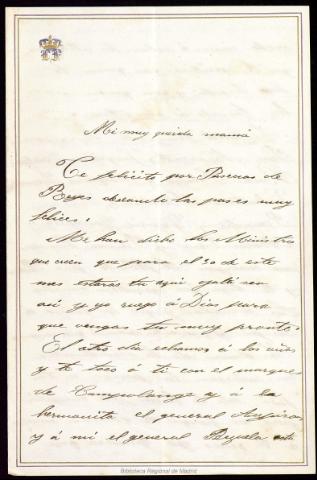 Mi muy querida mamá
Te felicito por Pascuas de
Reyes deseando las pases muy
felices.
Me han dicho los Ministros
que creen que para el 30 de este
mes estarás tu aqui ojalá sea
asi y yo ruego á Dios para
que vengas tu muy pronto.
El otro dia echamos á los años
y te tocó á ti con el marques
de Campo y á la
hermanita el general
y á mi el general este
Biblioteca Regional de Madrid